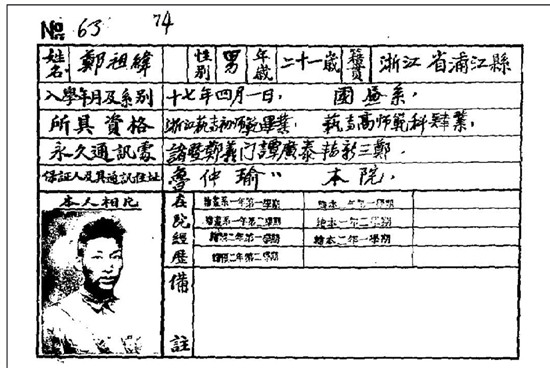 No 63 74
姓名 鄭祖緯 性別 男 年歲 二十一歲 籍貫 浙江省浦江縣
入學年月及系別 十七年四月一日, 國畫系,
所具資格 浙江杭高初師範畢業, 杭高高師範科肄業,
永久通訊處 諸暨鄭義門譚廣泰轉新三鄭,
保証人及其通訊住址 魯仲瑜 本院,
本人相片 在院經歷 繪畫系一年第一學期
繪畫系一年第二學期 繪本一年二學期
第一學期 繪本二年一學期
第二學期
備註